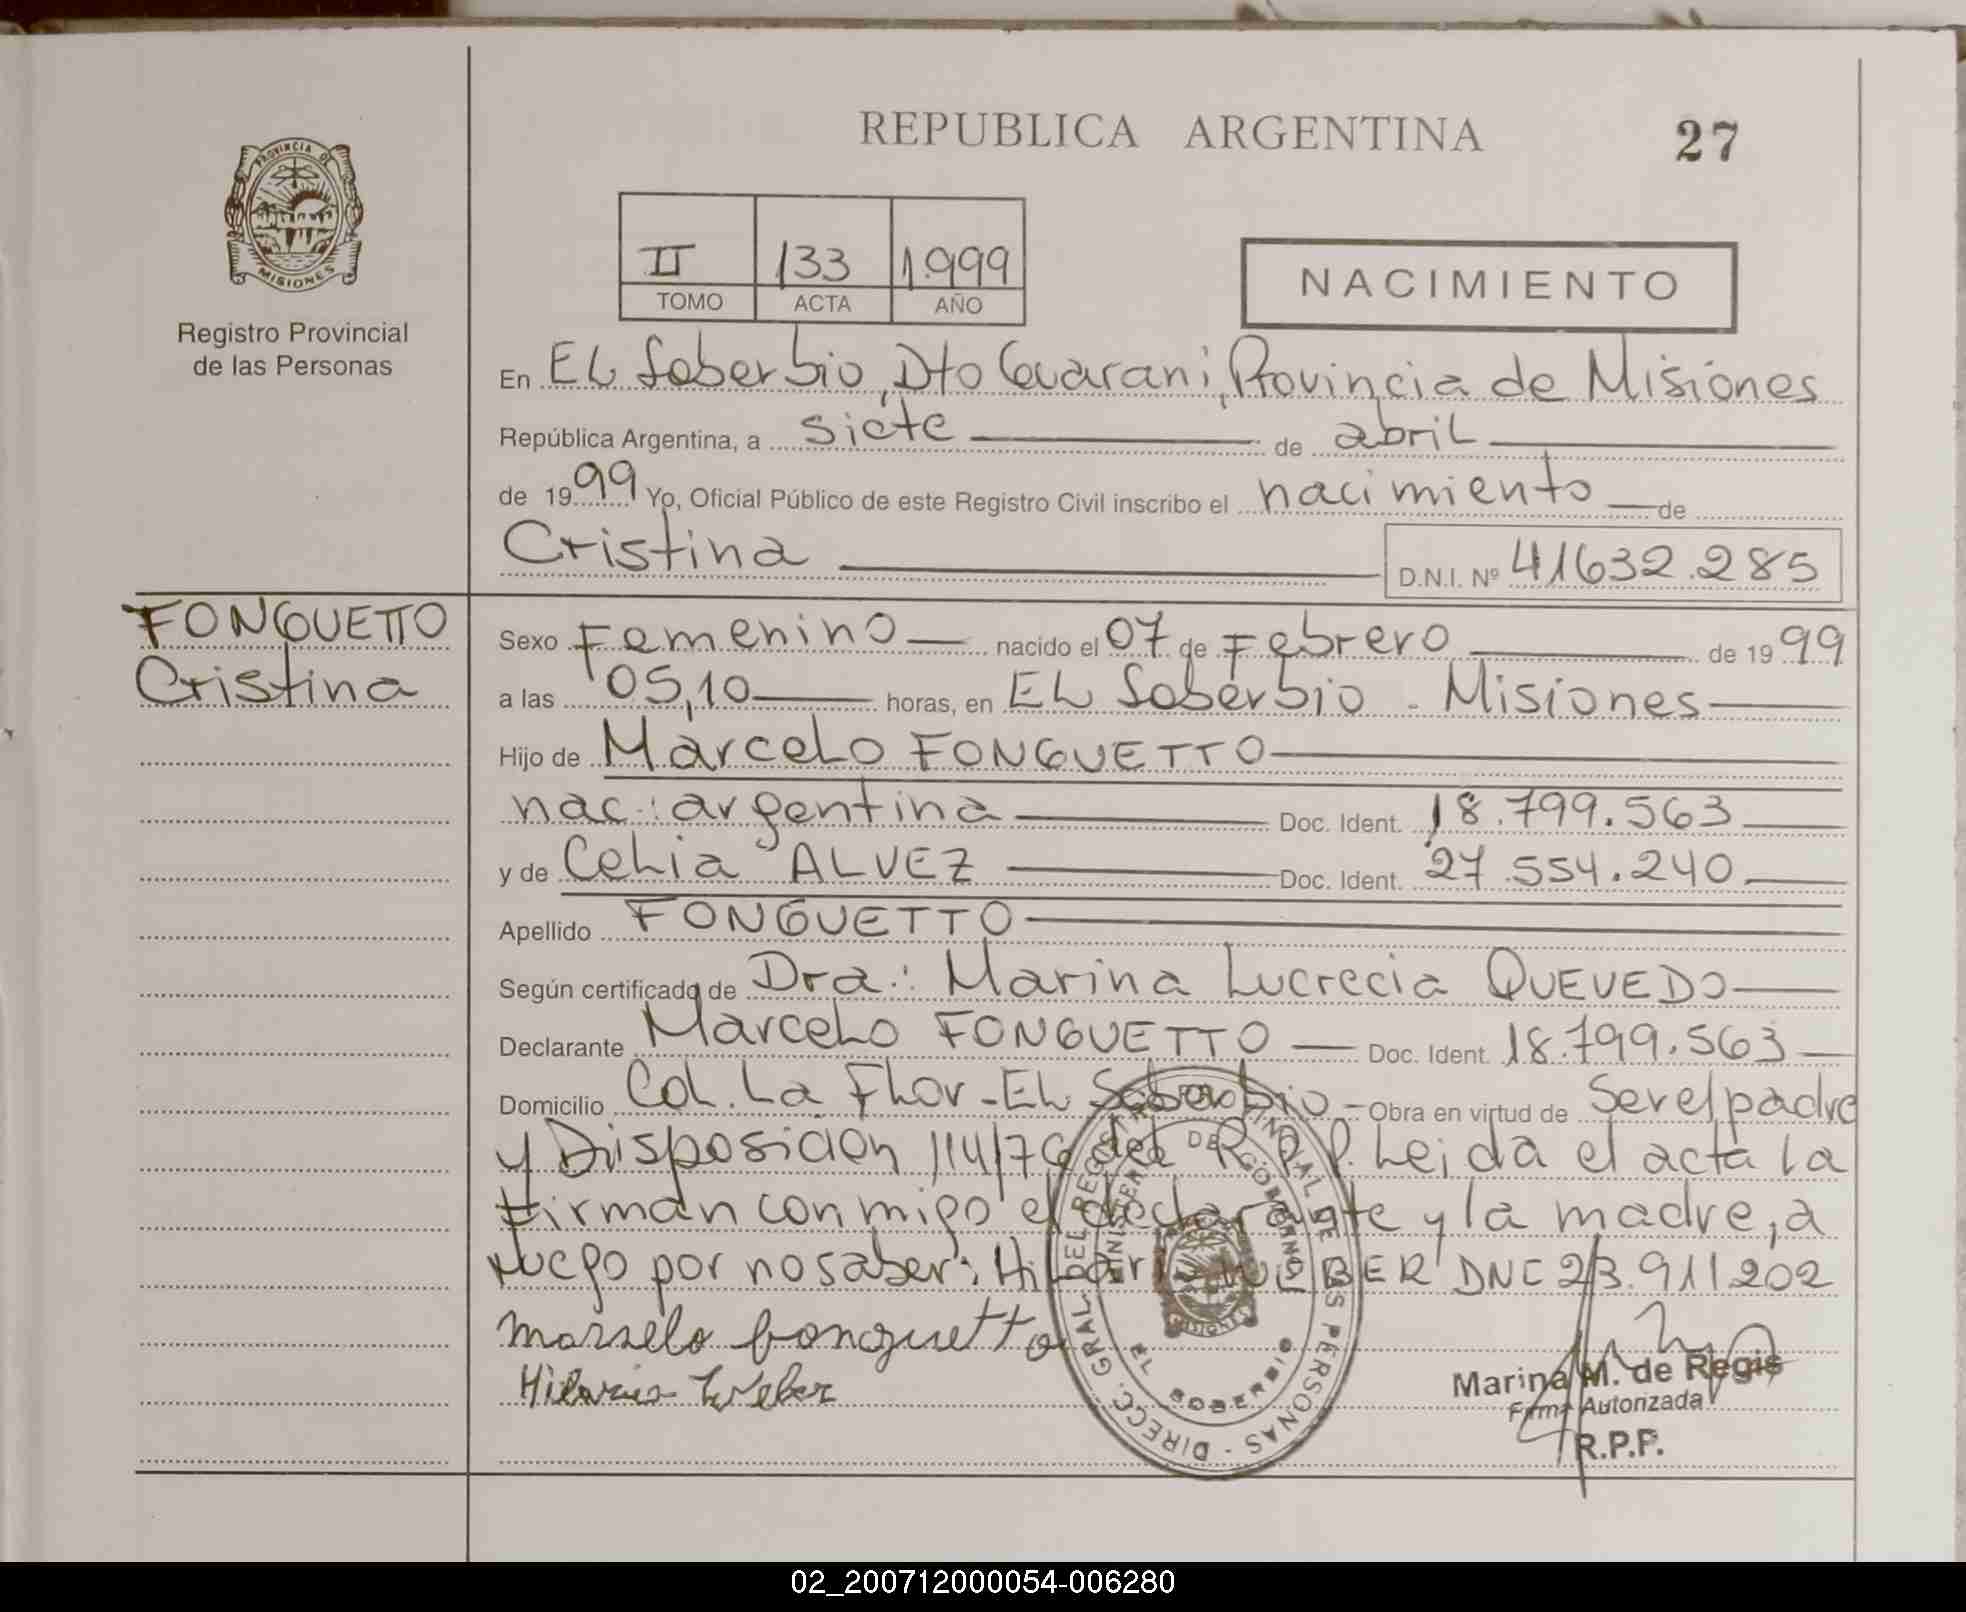 REPUBLICA ARGENTINA
27
PROVINCIA DE MISIONES
Registro Provincial
de las Personas
II 133 1.999
TOMO ACTA AÑO
NACIMIENTO
En EL Soberbio, Dto Guarani, Provincia de Misiones
República Argentina, a siete de abril
de 1999 Yo, Oficial Público de este Registro Civil inscribo el nacimiento de
Cristina D.N.I. Nº 41632.285
FONGUETTO
Cristina
Sexo Femenino nacido el 07 de Febrero de 1999
a las 05,10 horas, en EL Soberbio - Misiones
Hijo de Marcelo FONGUETTO
nac: argentina Doc. Ident. 18.799.563
y de Celia ALVEZ Doc. Ident. 27.554.240
Apellido FONGUETTO
Según certificado de Dra.: Marina Lucrecia QUEVEDO
Declarante Marcelo FONGUETTO Doc. Ident. 18.799.563
Domicilio Col. La Flor - EL Soberbio - Obra en virtud de Ser el padre
y Disposicion 114/76 del R.P.P. Leida el acta la
Firman conmigo el declarante y la madre, a
ruego por no saber: Hilario WEBER DNI 23.911202
marselo fonguetto
Hilario Weber
DIRECC. GRAL. DEL REGISTRO PROVINCIAL DE LAS PERSONAS -
MINISTERIO DE GOBIERNO
MISIONES
EL SOBERBIO
Marina M. de Regis
Firma Autorizada
R.P.P.
02_200712000054-006280